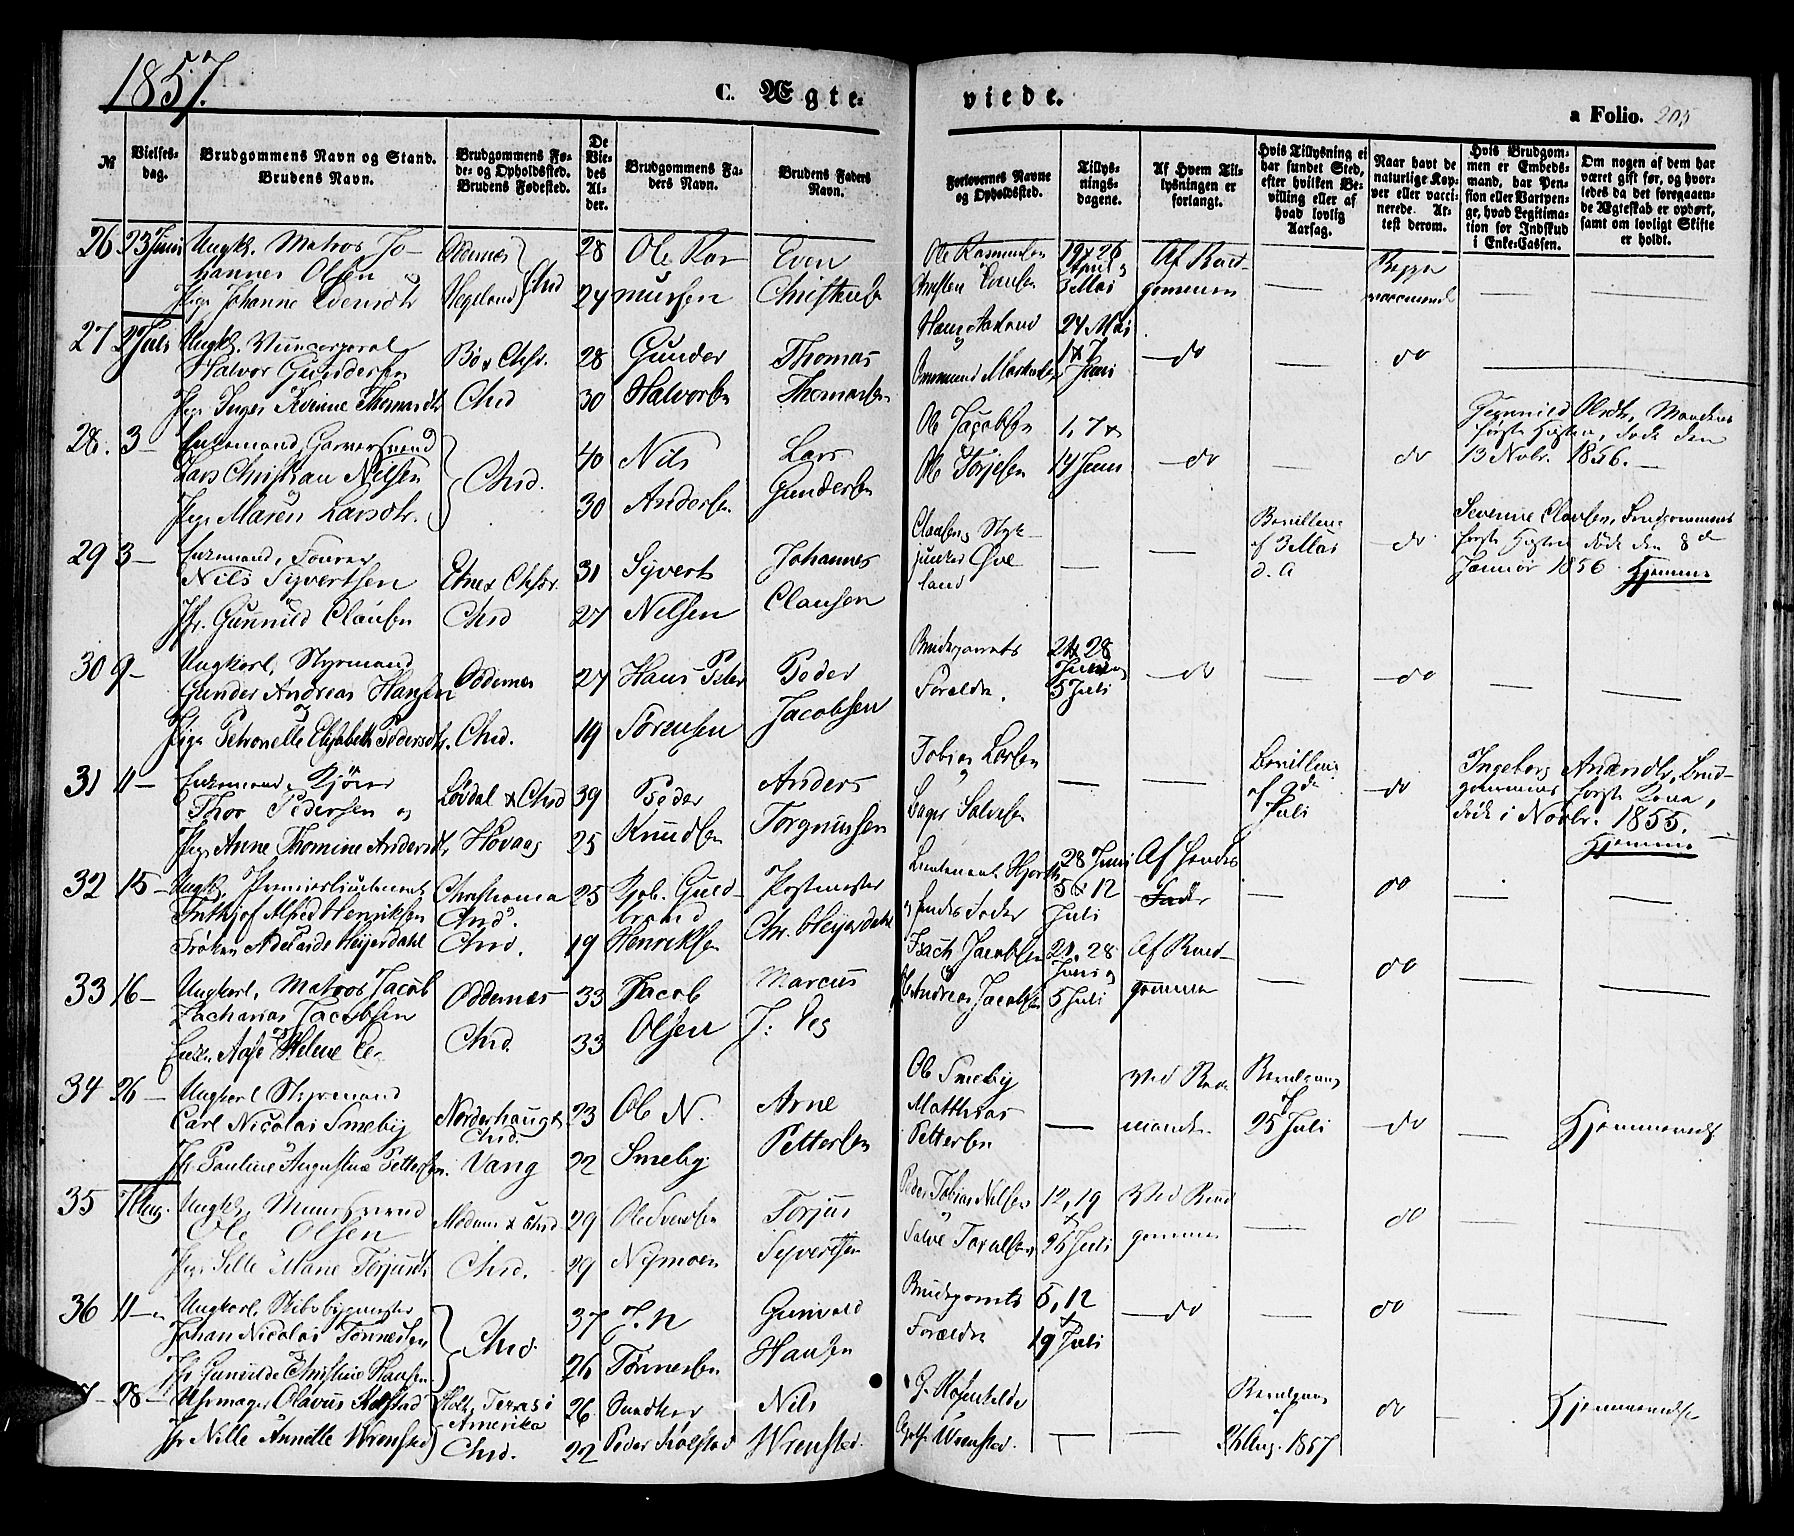 1857.
C. Ægte-
viede.
a Folio. 205
№
Vielses-
dag.
Brudgommens Navn og Stand.
Brudens Navn.
Brudgommens Fø-
de- og Opholdssted.
Brudens Fødested.
De
Vie-
des
Al-
der.
Brudgommens Fa-
ders Navn.
Brudens Faders
Navn.
Forlovernes Navne
og Opholdssted.
Tillys-
nings-
dagene.
Af Hvem Til-
lysningen er
forlangt.
Hvis Tillysning ei
har fundet Sted,
efter hvilken Be-
villing eller af
hvad lovlig
Aarsag.
Naar havt de
naturlige Kop-
per eller vacci-
nerede. At-
test derom.
Hvis Brudgom-
men er Embeds-
mand, har Pen-
sion eller Vartpen-
ge, hvad Legitima-
tion for Indskud
i Enke-Cassen.
Om nogen af dem har
været gift før, og hvor-
ledes da det foregaaen-
de Ægteskab er ophørt,
samt om lovligt Skifte
er holdt.
26 23 Juni Ungk. Matros Jo-
hannes Olsen og
Pige Johanne Evensdtr
Oddernes
Vegeland Chsd
28
24
Ole Ras-
mussen
Even
Christensen
Ole Rasmussen
Christen Evensen
19 & 26
April &
3 Mai
Af Brud-
gommen
—
Begge
vaccinerede
— —
27 2 Juli Ungk. Halvor Gundersen
Pige Inger Thomasdtr
Bø & Chsr.
Chsd
28
30
Gunder
Halvorsen
Thomas
Thomassen
Hans Aaland
24 Mai
1 & 7
Juni
— do
—
do
—
28. 3 — Enkemand, Garversvend
Lars Christian Nilsen
Pige Maren Larsdtr.
Chsd.
40
30
Nils
Andersen
Lars
Gundersen
Ole Jacobsen
Ole Torjesen
1, 7 &
14 Juni
— do
—
do
Gunnild Olsdtr, Mandens
første Hustru, døde den
13 Novbr. 1856. —
29 3 — Enkemand, Fourer
Nils Syvertsen
Jfr. Gunnild Clausen
Etne & Chsr.
Chsd
31
27
Syvert
Nilsen
Johannes
Clausen
Clausen & Styk-
junker Øve-
land
—
—
Bevilling
af 3 Mai
d. A
do
Severine Clausen, Brudgommens
første Hustru døde den 8de
Januar 1856. Hjemme
30 9 — Ungkarl, Styrmand
Gunder Andreas Hansen
Pige Petronelle Elisabeth Pedersdtr.
Oddernes
Chsd.
27
19
Hans Peter
Sørensen
Peder
Jacobsen
Brudeparrets
Forældre.
21 & 28
Juni &
5 Juli
— do
—
— do
—
—
31 11 — Enkemand,
Thor Pedersen og
Pige Anne Thomine Andersdtr
Løvdal & Chsd
Høvaag
39
25
Peder
Knudsen
Anders
Torgrimsen
Tobias Larsen
Salvesen
—
—
Bevilling
af 9de
Juli
do
Ingeborg Andersdtr, Brud-
gommens første Kone,
døde i Novbr. 1855.
Hjemme
32 15 — Ungk. Premierlieutenant
Frithjof Alfred Henriksen
Frøken Adelaide Heyerdahl
Christiania
Chsd.
Chsd.
25
19
Guld-
brand
Henriksen
Postmester
Chr. Heyerdahl
Lieutenant Hjorth
og hendes Fader
28 Juni
5 & 12
Juli
Af hendes
Fader
—
do
—
—
33 16 — Ungkarl, Matros Jacob
Zacharias Jacobsen
Enke Aase Helene
Oddernes
Chsd.
33
33
Jacob
Olsen
Marcus
J:
Isach Jacobsen
Andreas Jacobsen
21, 28
Juni &
5 Juli
Af Brud-
gommen
—
do
—
—
34 26 — Ungkarl Styrmand
Carl Nicolai Smeby
Jfr Pauline Augusta Pettersen.
Norderhaug &
Chsd.
Vang
23
22
Ole N.
Smeby
Arne
Pettersen
Ole Smeby
Matthias
Pettersen
—
Ved Bevilling
af
25 Juli
do
—
Hjemmeviet
35 7 Aug. Ungk. Muursvend
Ole Olsen
Pige Sille Marie Torjusdtr
Modum & Chsd
Chsd.
29
29
Ole Svendsen
Nymoen
Torjus
Syvertsen
Peder Tobias Nilsen
12, 19
&
26 Juli
Ved Brud
gommen
—
do
—
—
36 11 — Ungkarl, Skibsbygmester
Johan Nicolai Tønnesen
Jfr Gunnilde Christine Hansen
Chsd.
37
26
J. N
Tønnesen
Gunvald
Hansen
Brudeparrets
Forældre
5, 12
&
19 Juli
— do
—
do
—
—
28 — Uhrmager Olavus Kolstad
Jfr Nille Annette Wrenstad
Texas i
Amerika
Chsd.
26.
22
Peder Kolstad
Nils
Wrenstad.
Wrenstad.
—
—
Bevilling
af
Aug. 1857
do
—
Hjemmeviede